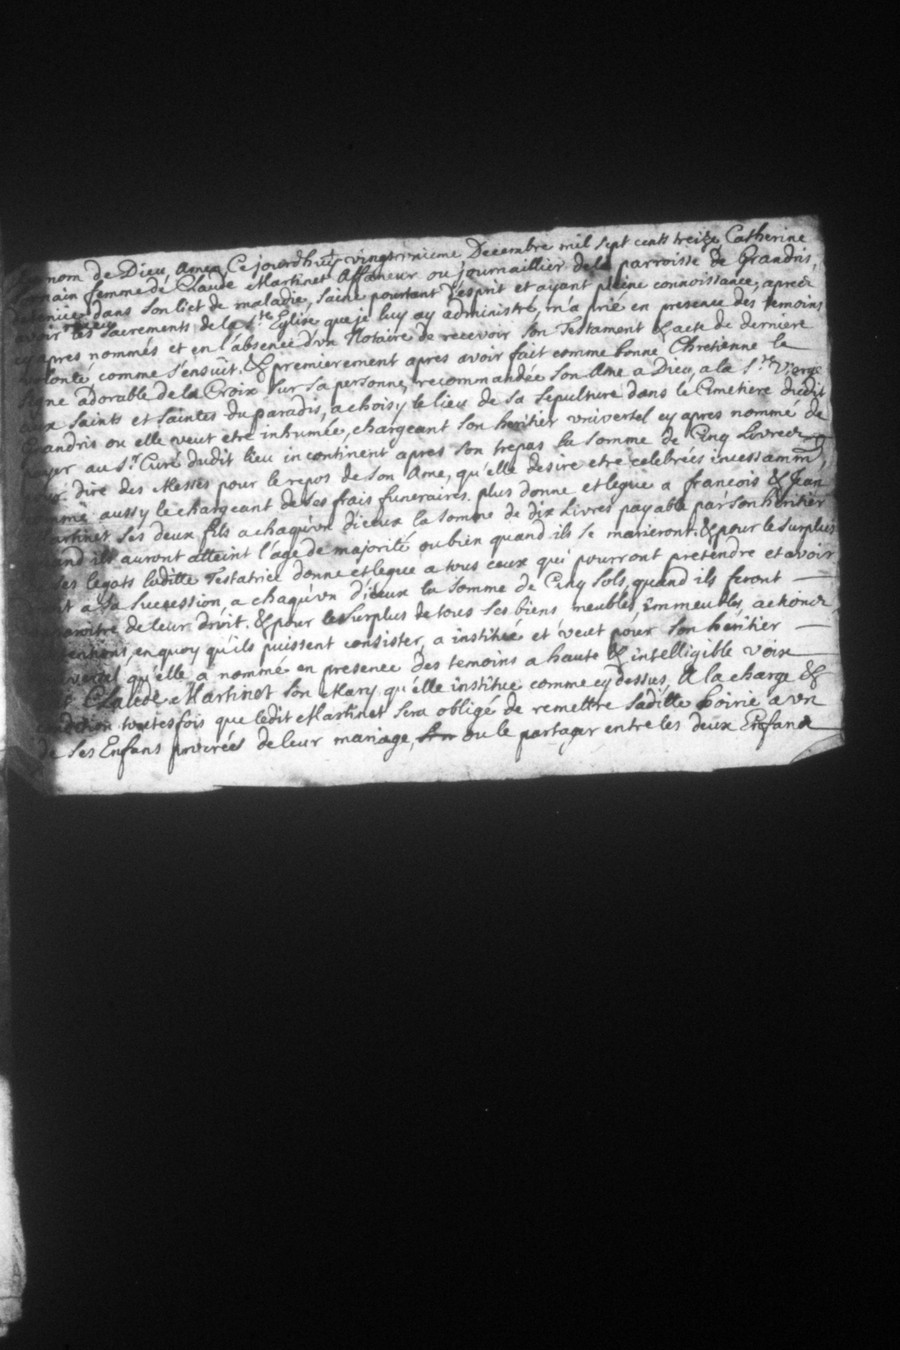 nom de Dieu, Amen, Ce jourdhuy vingt Decembre mil sept cents treize Catherine
femme de Claude Martinet Affaneur ou journaillier de la parroisse de Grandris,
dans son lict de maladie, saine pourtant d'esprit et ayant pleine connoissance, apres
avoir receu les sacrements de la Ste Eglise que je luy ay administré, m'a prié en presence des temoins
cy apres nommés et en l'absence d'vn Notaire de recevoir son Testament & acte de derniere
volonté comme s'ensuit. & premierement apres avoir fait comme bonne Chretienne le
signe adorable de la Croix sur sa personne, recommandée son Ame a Dieu, a la Ste Vierge
aux saints et saintes du paradis, a choisy le lieu de sa sepulture dans le Cimetiere dudit
Grandris ou elle veut etre inhumée, chargeant son heritier vniversel cy apres nommé de
payer au Sr Curé dudit lieu incontinent apres son trepas la somme de Cinq Livres
pour dire des Messes pour le repos de son Ame, qu'elle desire etre celebrées incessamm,
aussy le chargeant de ses frais funeraires. plus donne et legue a francois & Jean
Martinet ses deux fils a chaqu'vn d'iceux la somme de dix Livres payable par son heritier
quand ils auront atteint l'age de majorité ou bien quand ils se marieront. & pour le surplus
ses legats laditte Testatrice donne et legue a tous ceux qui pourront pretendre et avoir
droit a sa succession, a chaqu'vn d'iceux la somme de Cinq sols, quand ils feront
de leur droit. & pour le surplus de tous ses biens meubles, immeubles, actions
en quoy qu'ils puissent consister, a institué et veut pour son heritier
vniversel qu'elle a nommé en presence des temoins a haute & intelligible voix
Claude Martinet son Mary, qu'elle institue comme cy dessus, A la charge &
condition toutesfois que ledit Martinet sera obligé de remettre saditte hoirie a vn
de ses Enfans procréés de leur mariage, ou le partager entre les deux Enfans